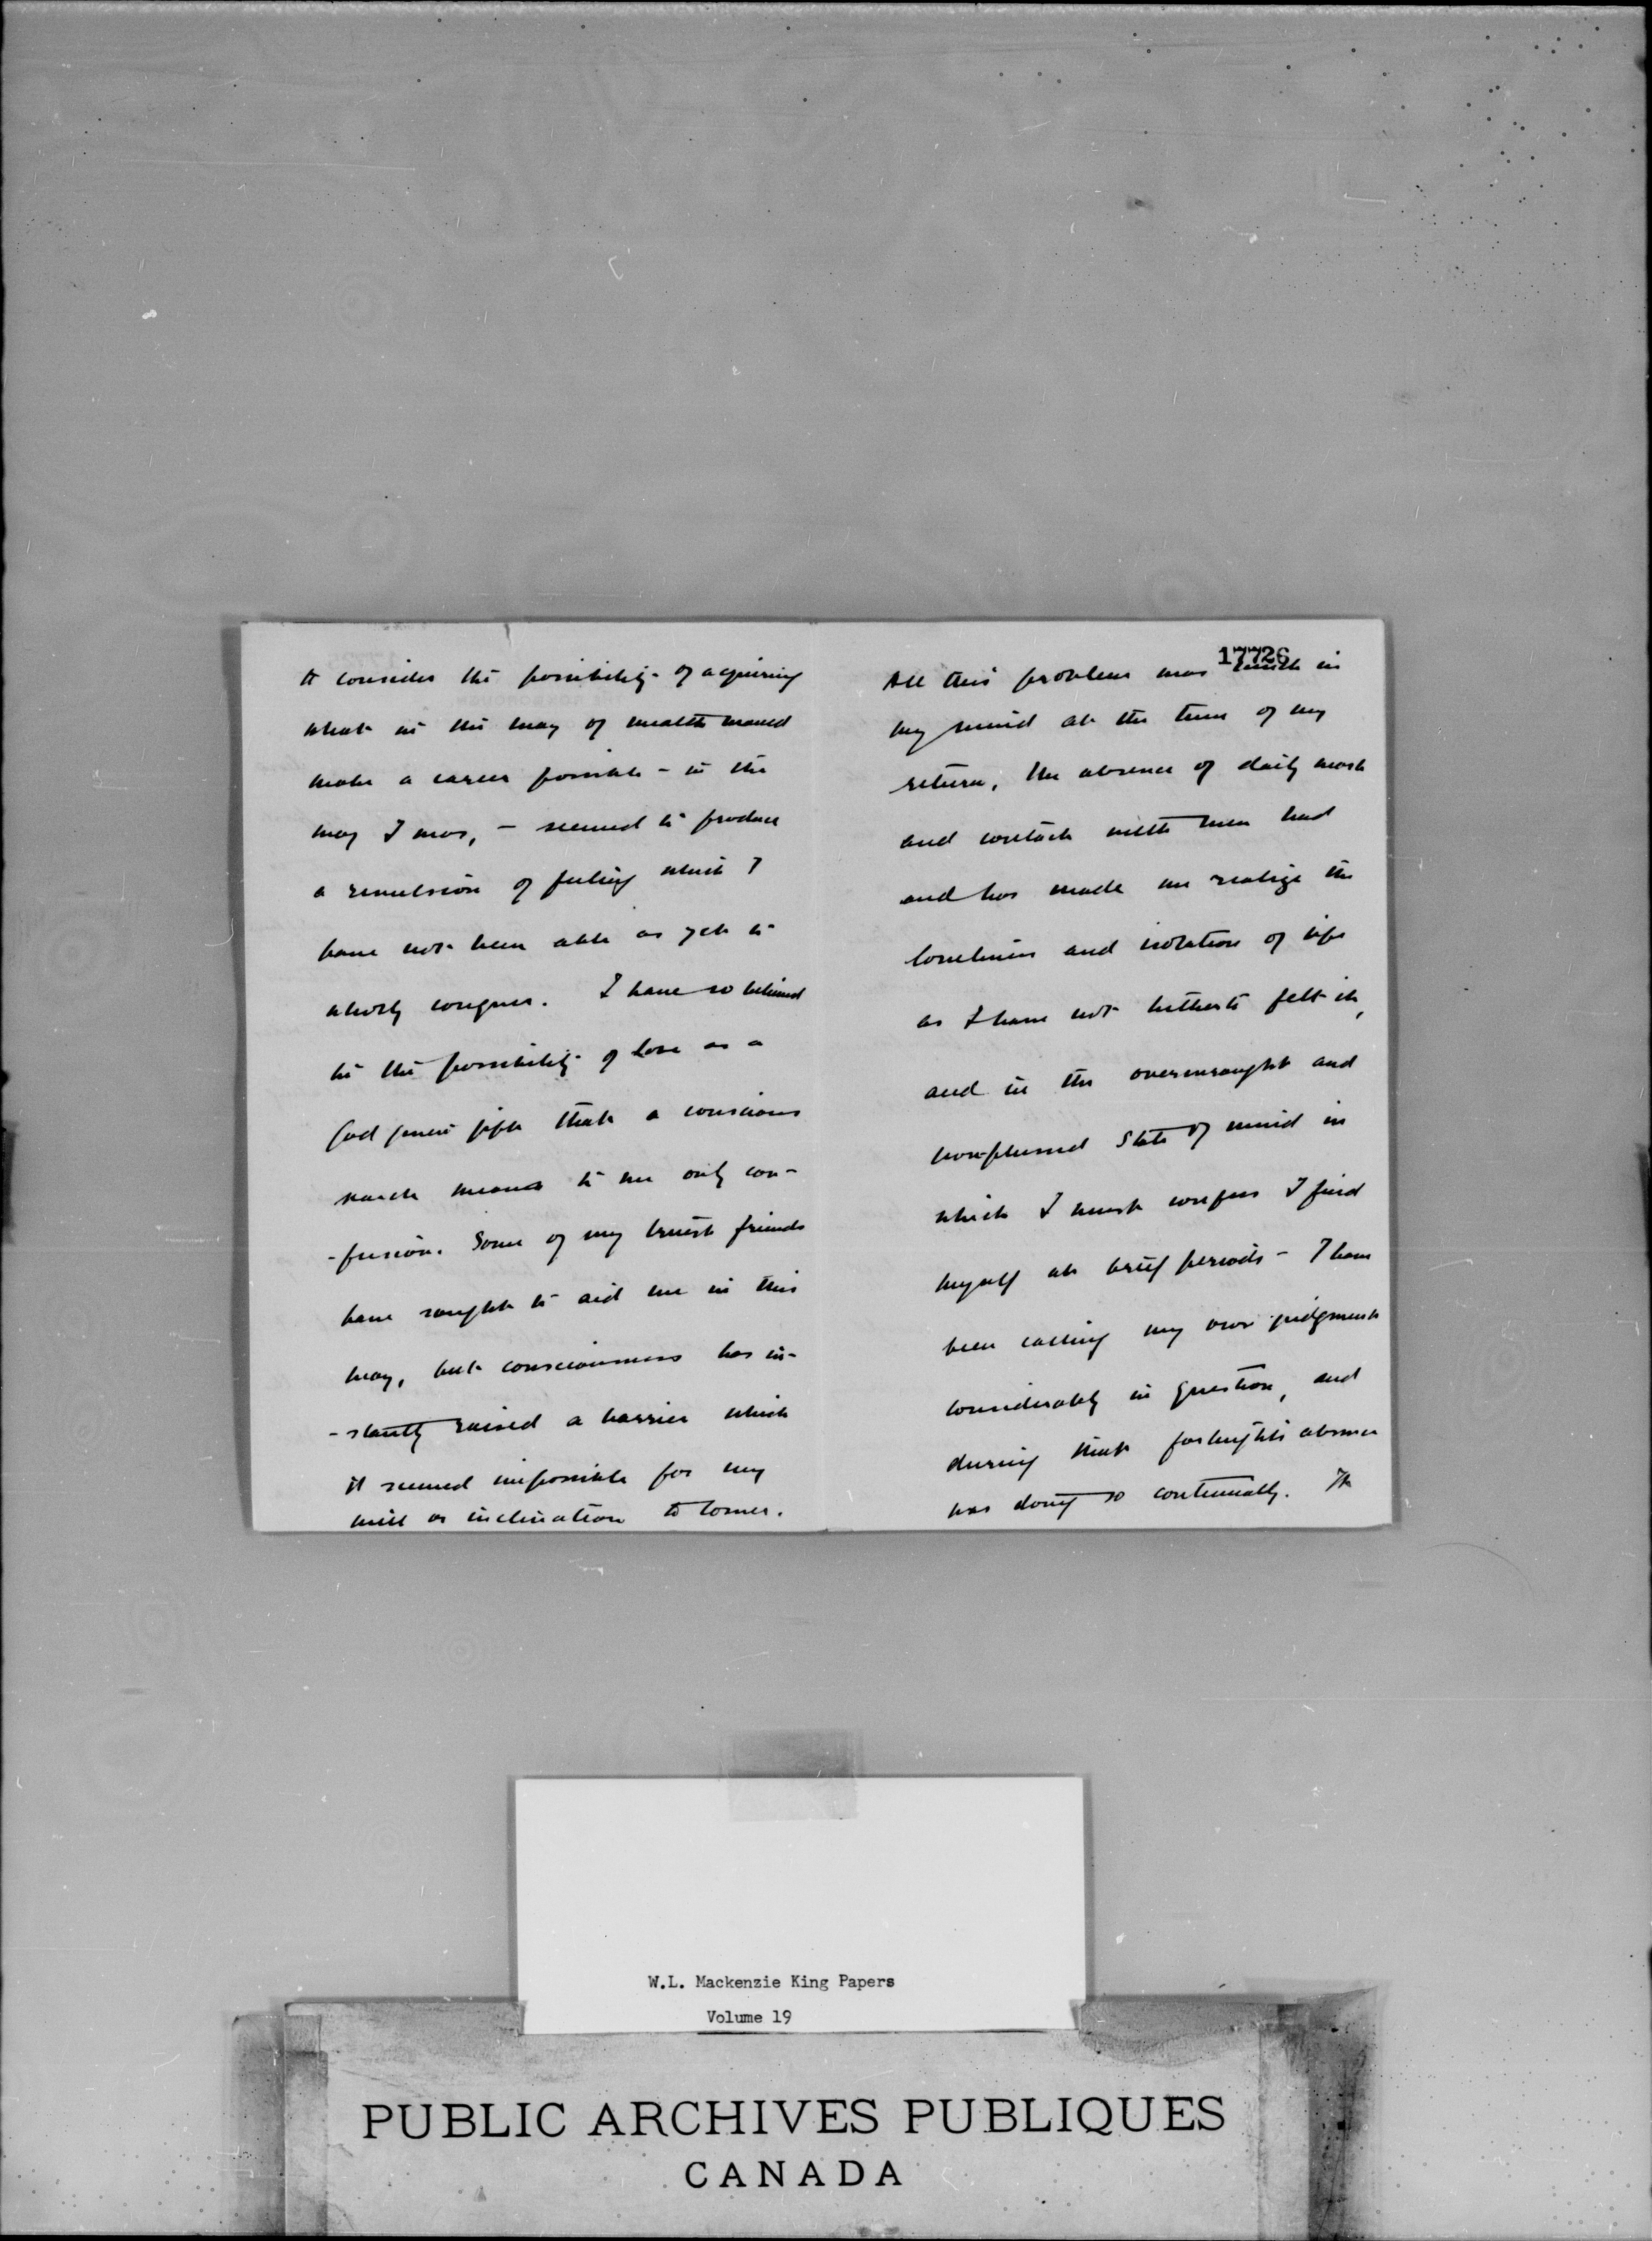 to consider the possibility of acquiring
what in the way of wealth would
make a career possible - in the
way I was, - seemed to produce
a revulsion of feeling which I
have not been able as yet to
wholly conquer. I have so believed
in the possibility of love as a
God given gift that a conscious
search means to me only con-
-fusion. Some of my truest friends
have sought to aid me in this
way, but consciousness has in-
-stantly raised a barrier which
it seemed impossible for my
will or inclination to lower.
17726
All this problem was much in
my mind at the time of my
return, the absence of daily work
and contact with men had
and has made me realize the
loneliness and isolation of life
as I have not hitherto felt it,
and in the overwrought and
non-plussed state of mind in
which I must confess I find
myself at brief periods - I have
been calling my own judgment
considerably in question, and
during that fortnight's absence
was doing so continually. The
W.L. Mackenzie King Papers
Volume 19
PUBLIC ARCHIVES PUBLIQUES
CANADA